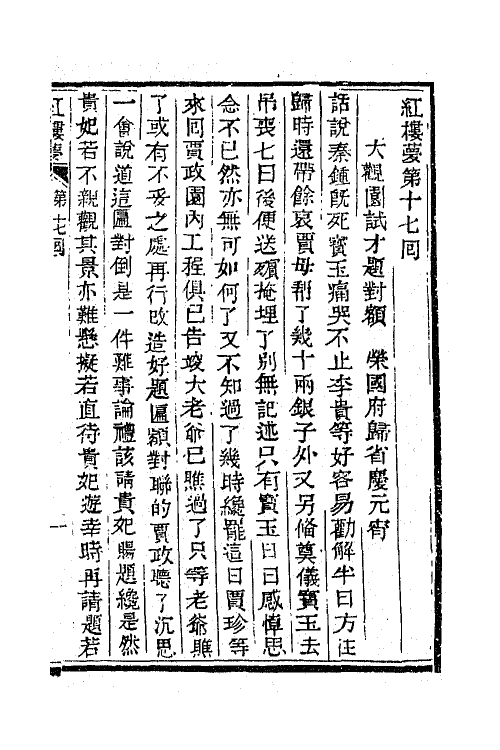 紅樓夢第十七囘
大觀園試才題對額　榮國府歸省慶元宵
話說秦鍾旣死寶玉痛哭不止李貴等好容易勸解半日方住
歸時還帶餘哀賈母帮了幾十兩銀子外又另備奠儀寶玉去
吊喪七日後便送殯掩埋了別無記述只有寶玉日日感悼思
念不已然亦無可如何了又不知過了幾時纔罷這日賈珍等
來囘賈政園內工程俱已告竣大老爺已瞧過了只等老爺瞧
了或有不妥之處再行改造好題匾額對聯的賈政聽了沉思
一會說道這匾對倒是一件難事論禮該請貴妃賜題纔是然
貴妃若不親觀其景亦難懸擬若直待貴妃遊幸時再請題若
紅樓夢
第十七囘
一